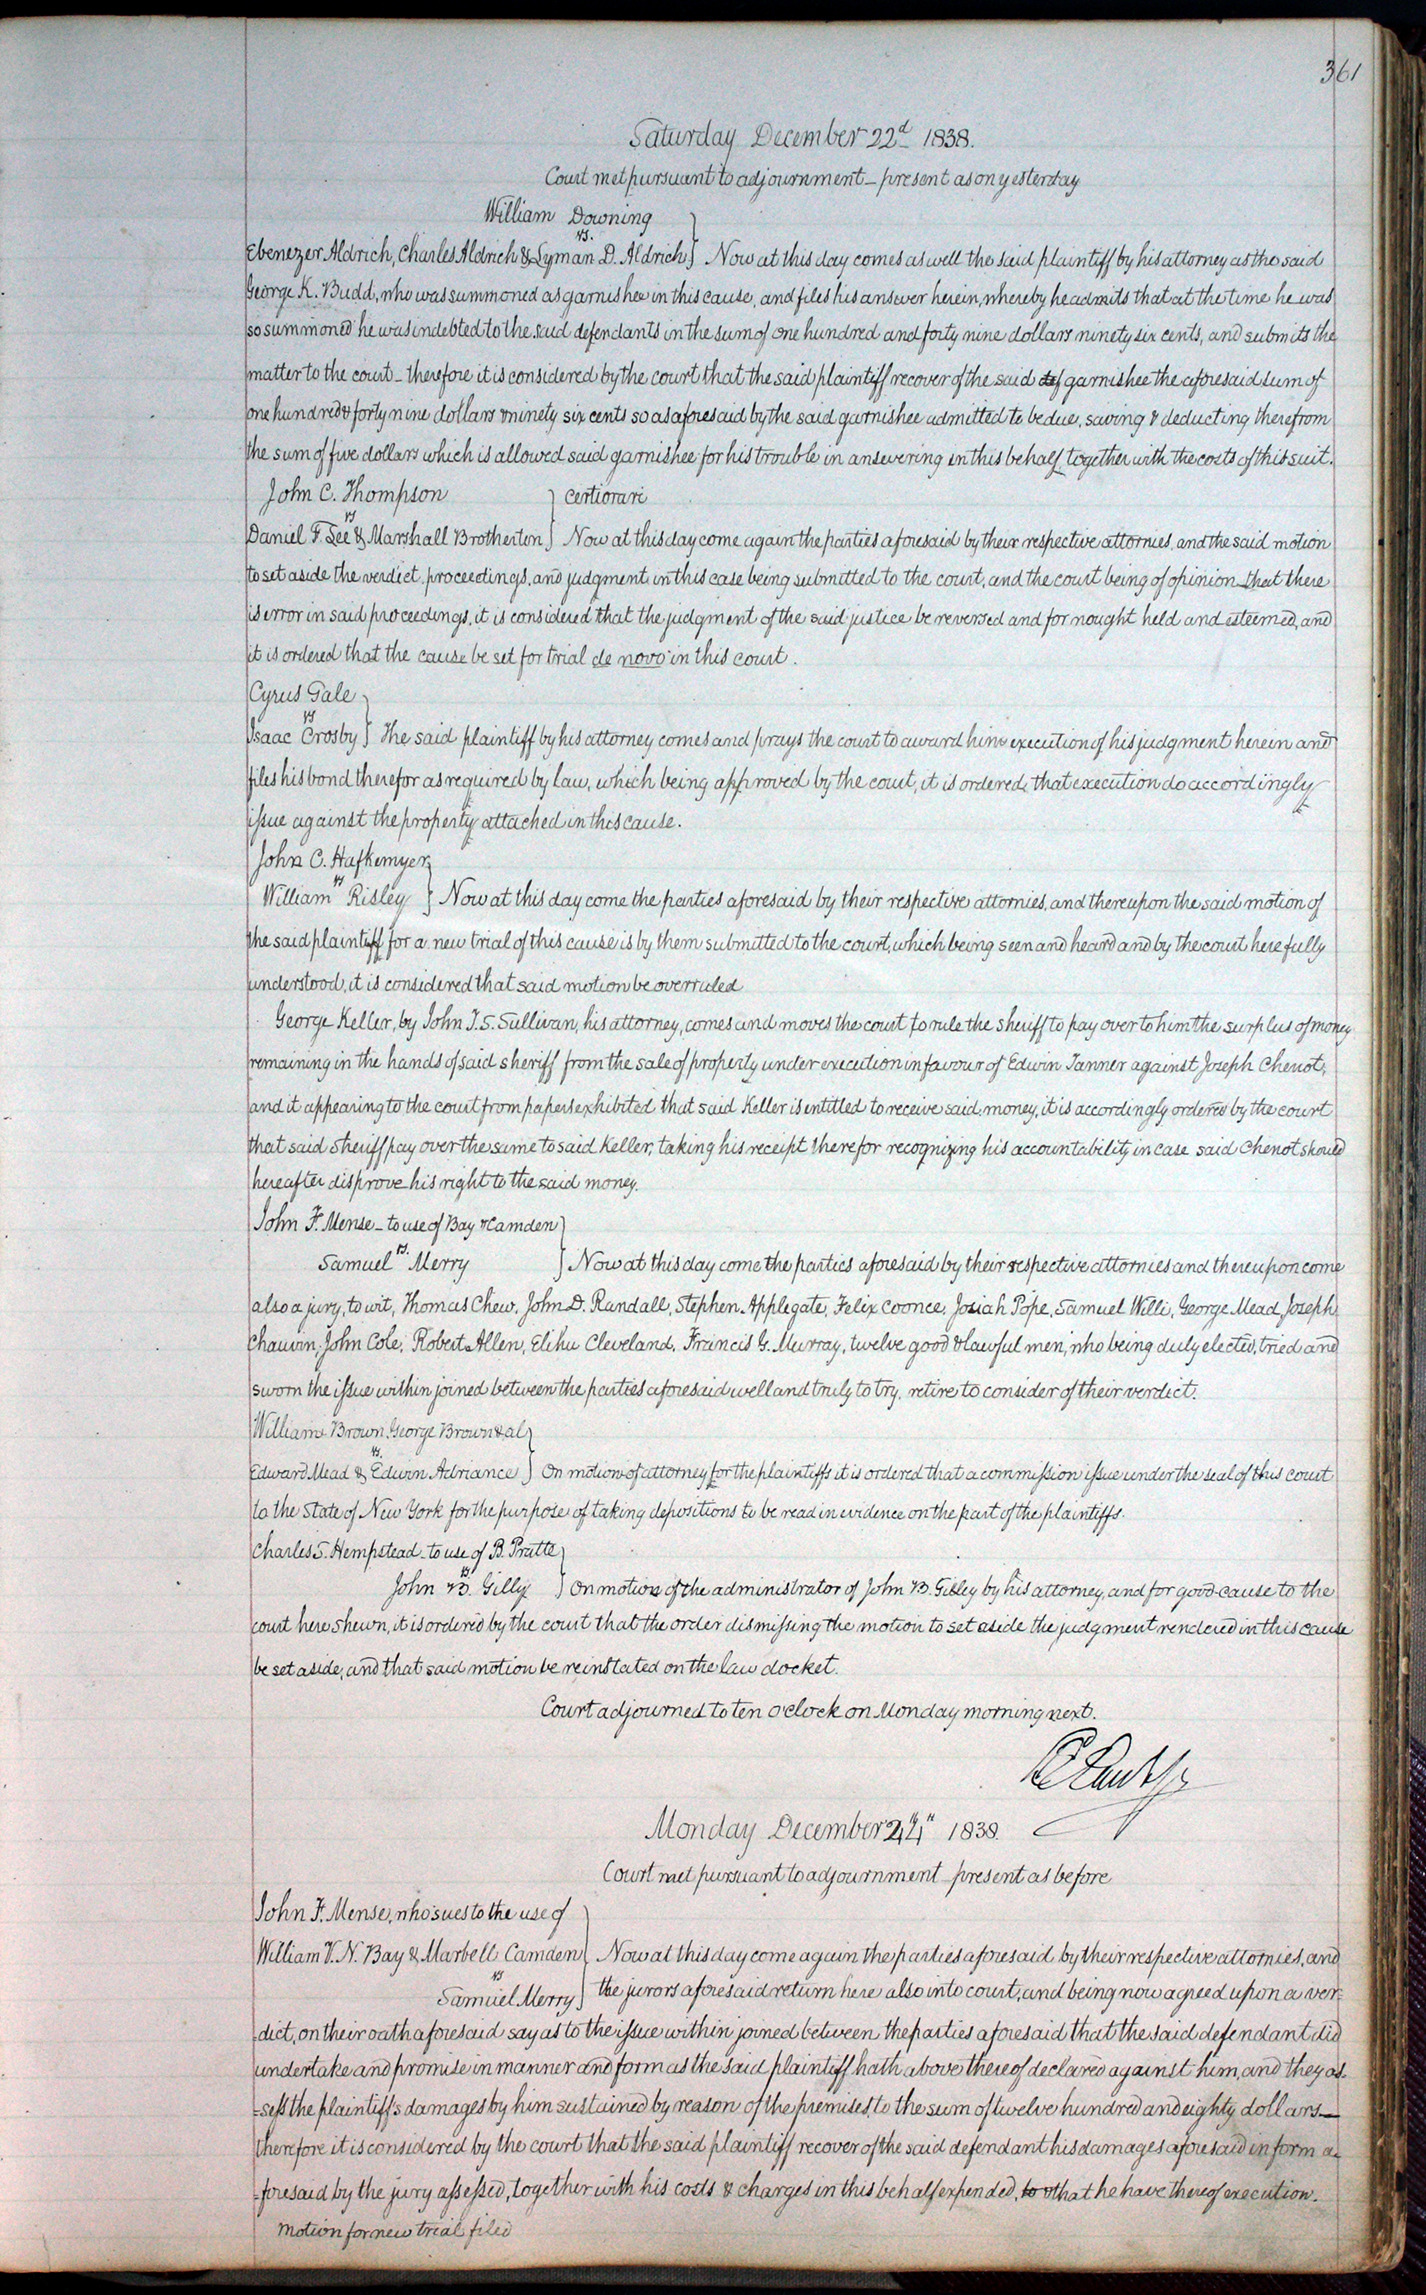 361
Saturday December 22d 1838.
Court met pursuant to adjournment – present as on yesterday
William Downing
vs.
Ebenezer Aldrich, Charles Aldrich & Lyman D. Aldrich } Now at this day comes as well the said plaintiff by his attorney as the said
George K. Budd, who was summoned as garnishee in this cause, and files his answer herein, whereby he admits that at the time he was
so summoned he was indebted to the said defendants in the sum of one hundred and forty nine dollars ninety six cents, and submits the
matter to the court – therefore it is considered by the court that the said plaintiff recover of the said def garnishee the aforesaid sum of
one hundred & forty nine dollars & ninety six cents so as aforesaid by the said garnishee admitted to be due, saving & deducting therefrom
the sum of five dollars which is allowed said garnishee for his trouble in answering in this behalf together with the costs of this suit.
John C. Thompson } certiorari
vs
Daniel F. Lee & Marshall Brotherton } Now at this day come again the parties aforesaid by their respective attornies, and the said motion
to set aside the verdict, proceedings, and judgment in this case being submitted to the court, and the court being of opinion that there
is error in said proceedings, it is considered that the judgment of the said justice be reversed and for nought held and esteemed, and
it is ordered that the cause be set for trial de novo in this court.
Cyrus Gale }
vs
Isaac Crosby } The said plaintiff by his attorney comes and prays the court to award him execution of his judgment herein and
files his bond therefor as required by law, which being approved by the court, it is ordered that execution do accordingly
issue against the property attached in this cause.
John C. Hafkemyer }
vs
William Risley } Now at this day come the parties aforesaid by their respective attornies, and thereupon the said motion of
the said plaintiff for a new trial of this cause is by them submitted to the court, which being seen and heard and by the court here fully
understood, it is considered that said motion be overruled
George Keller, by John T. S. Sullivan, his attorney, comes and moves the court to rule the sheriff to pay over to him the surplus of money
remaining in the hands of said sheriff from the sale of property under execution in favour of Edwin Tanner against Joseph Chenot,
and it appearing to the court from papers exhibited that said Keller is entitled to receive said money, it is accordingly ordered by the court
that said sheriff pay over the same to said Keller, taking his receipt therefor recognizing his accountability in case said Chenot should
hereafter disprove his right to the said money.
John F. Mense – to use of Bay & Camden }
vs.
Samuel Merry } Now at this day come the parties aforesaid by their respective attornies and thereupon come
also a jury, to wit, Thomas Chew, John D. Randall, Stephen Applegate, Felix Coonce, Josiah Pope, Samuel Willi, George Mead, Joseph
Chauvin, John Cole, Robert Allen, Elihu Cleveland, Francis G. Murray, twelve good & lawful men, who being duly elected, tried and
sworn the issue within joined between the parties aforesaid well and truly to try, retire to consider of their verdict.
William Brown, George Brown & al }
vs.
Edward Mead & Edwin Adriance } On motion of attorney for the plaintiffs it is ordered that a commission issue under the seal of this court
to the State of New York for the purpose of taking depositions to be read in evidence on the part of the plaintiffs.
Charles S. Hempstead – to use of B. Pratte }
vs
John B. Gilly } On motion of the administrator of John B. Gilley by his attorney, and for good cause to the
court here shewn, it is ordered by the court that the order dismissing the motion to set aside the judgment rendered in this cause
be set aside, and that said motion be reinstated on the law docket.
Court adjourned to ten o'clock on Monday morning next.
Monday December 24th 1838.
Court met pursuant to adjournment – present as before
John F. Mense, who sues to the use of
William V. N. Bay & Marbell Camden } Now at this day come again the parties aforesaid by their respective attornies, and
vs
Samuel Merry } the jurors aforesaid return here also into court, and being now agreed upon a ver-
-dict, on their oath aforesaid say as to the issue within joined between the parties aforesaid that the said defendant did
undertake and promise in manner and form as the said plaintiff hath above thereof declared against him, and they as-
-sess the plaintiff's damages by him sustained by reason of the premises to the sum of twelve hundred and eighty dollars –
therefore it is considered by the court that the said plaintiff recover of the said defendant his damages aforesaid in form a-
-foresaid by the jury assessed, together with his costs & charges in this behalf expended, to & that he have thereof execution.
Motion for new trial filed